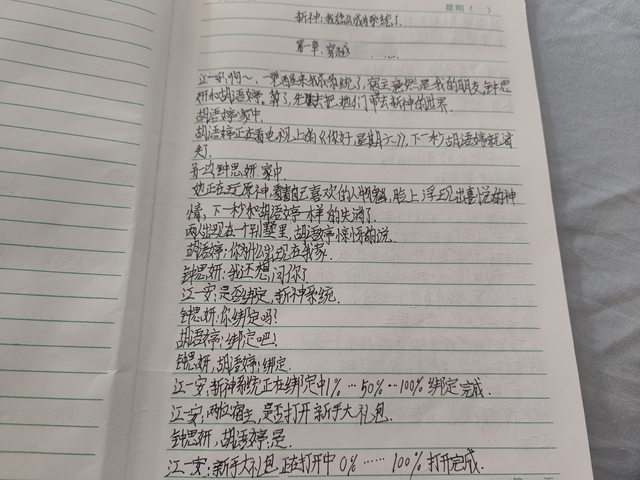 星期（ ）
新神：我怎么成为系统了.
第一章：穿越
江一安：啊～，一觉醒来我成系统了，宿主竟然是我的朋友钟思
妍和胡语婷。算了，先去把她们带去新神的世界.
胡语婷家中.
胡语婷正在看电视上的《你好，星期六》，下一秒胡语婷就消
失了.
另一边钟思妍家中.
她正在玩原神，看着自己喜欢的人物，脸上浮现出喜悦的神
情，下一秒和胡语婷一样的失消了.
两人出现在一个别墅里，胡语婷惊讶的说.
胡语婷：你为什么出现在我家.
钟思妍：我还想问你了
江一安：是否绑定，新神系统.
钟思妍：你绑定吗？
胡语婷：绑定吧！
钟思妍，胡语婷：绑定.
江一安：新神系统正在绑定中1%…50%…100%绑定完成.
江一安：两位宿主，是否打开新手大礼包.
钟思妍，胡语婷：是.
江一安：新手大礼包正在打开中 0%……100%打开完成.